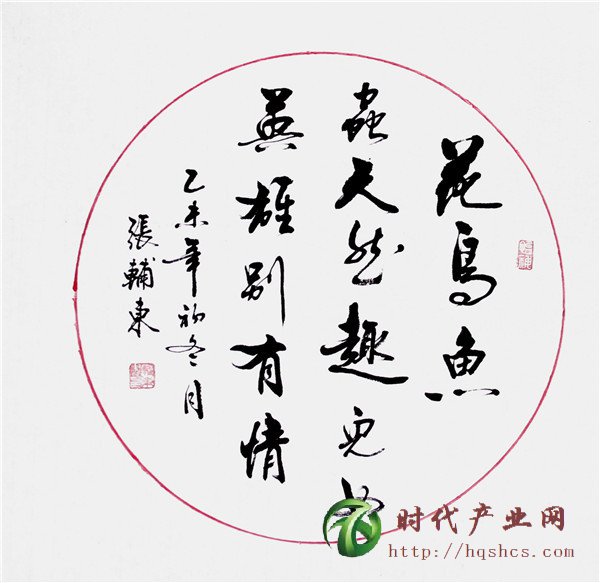 花鸟魚
蟲天然趣兒女
英雄别有情
乙未年初冬月
張輔東
时代产业网
http://hqshcs.com